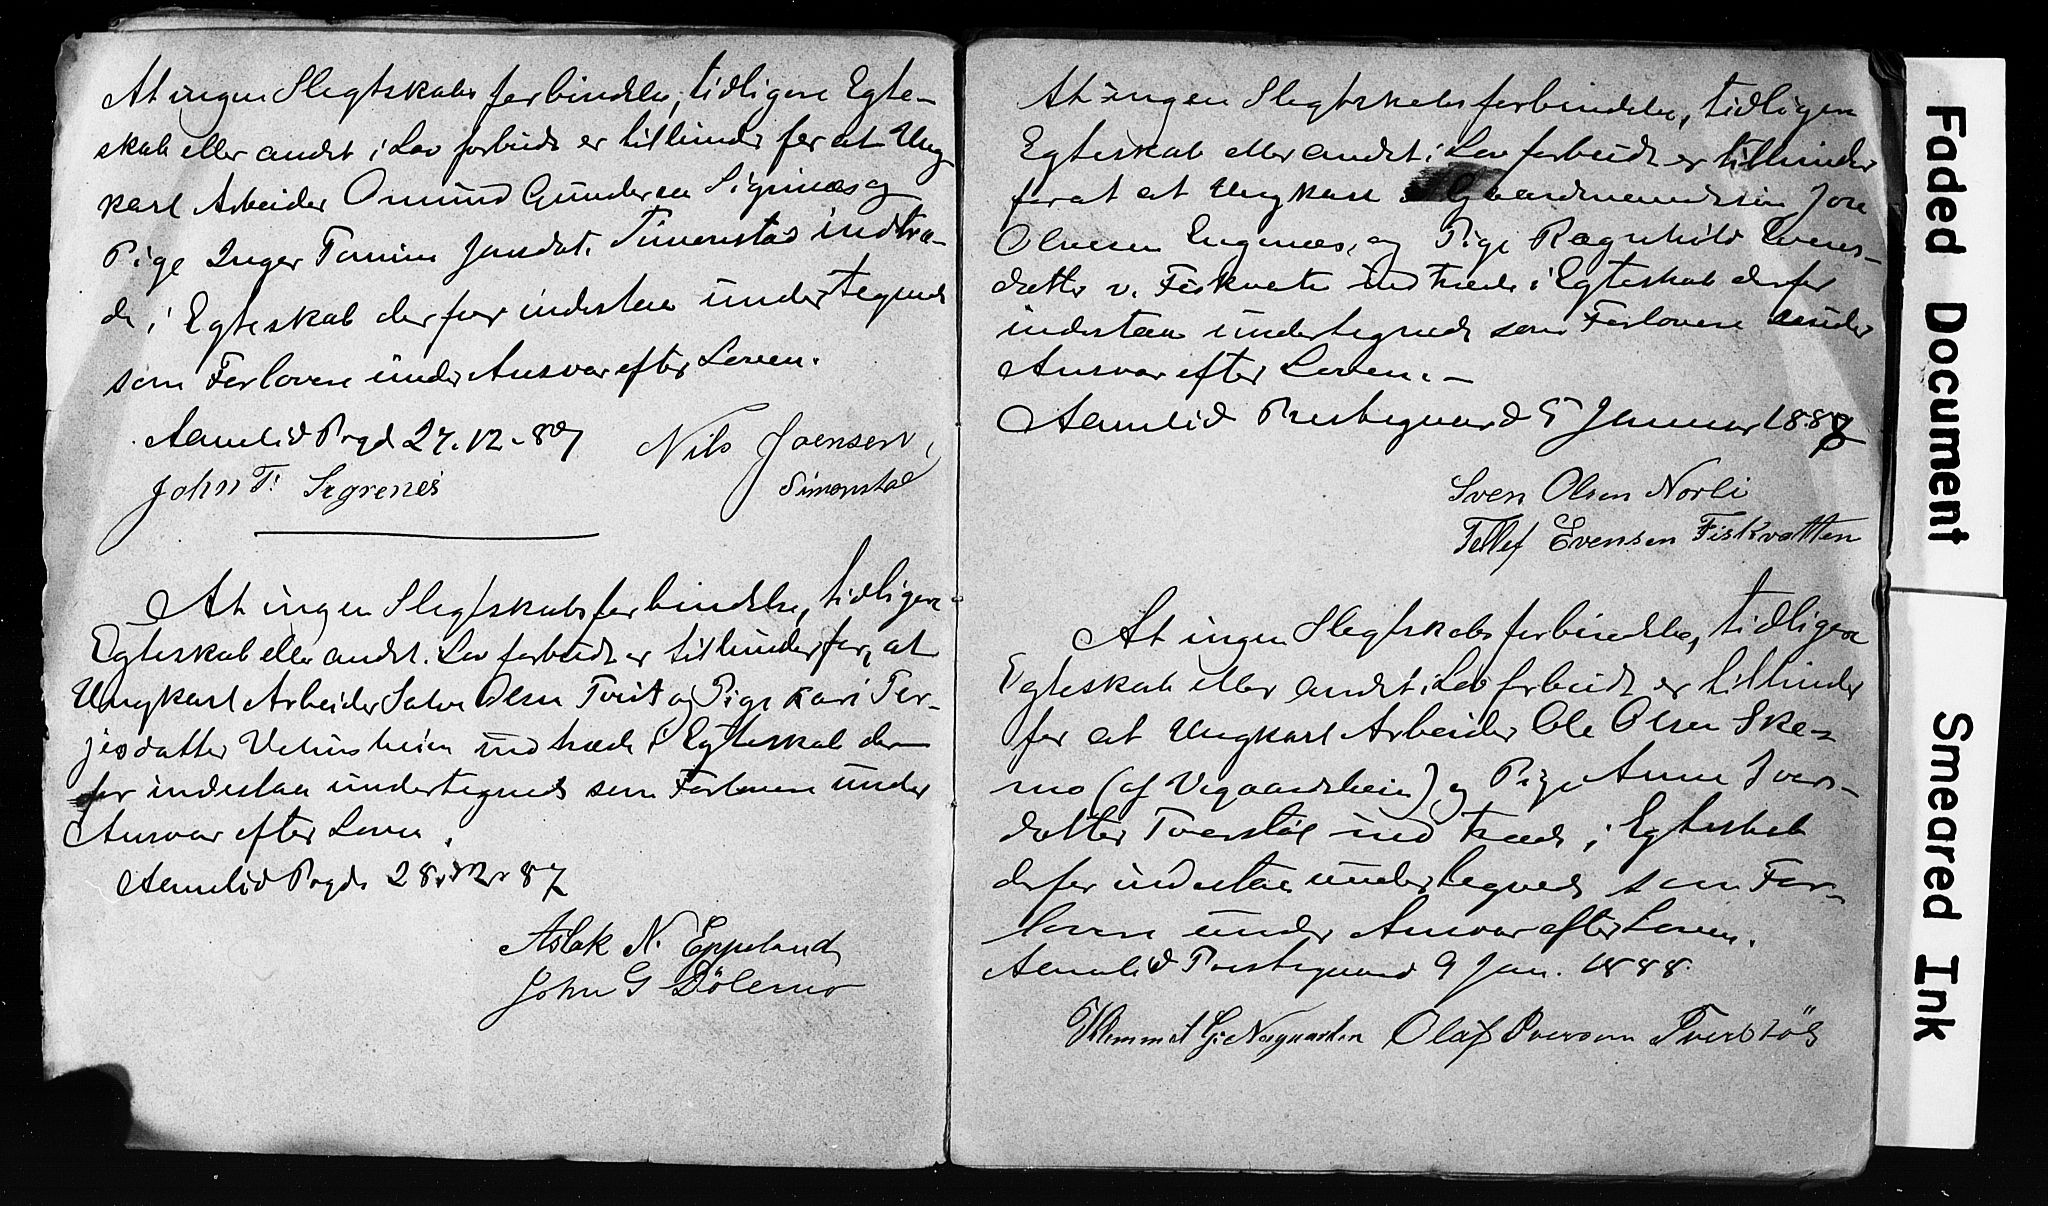 At ingen Slegtskabsforbindelse, tidligere Egte-
skab eller andet i Lov forbudt er tilhinder for at Ung-
karl Arbeider Omund Gundersen Sigrinæs og
Pige Inger Tomine Jensdat. Simonstad indtræ-
de i Egteskab derfor indestaa undertegnede
som Forlovere under Ansvar efter Loven.
Aamlid Prgd 27.12-87
Nils Joensen
Simonstad
John T. Segrenes
At ingen Slegtskabsforbindelse, tidligere
Egteskab eller andet i Lov forbudt er tilhinder for, at
Ungkarl Arbeider Salve Olsen Tveit og Pige Kari Ter-
jesdatter indtræde i Egteskab der-
for indestaa undertegnede som Forlovere under
Ansvar efter Loven.
Aamlid Prgd. 28.12.87
Aslak N. Eppeland
John G Dölemo
At ingen Slegtskabsforbindelse, tidligere
Egteskab eller andet i Lov forbudt er tilhinder
for at at Ungkarl Gaardmandssøn Jon
Olsen Engenæs, og Pige Ragnhild Evens-
datter v. Fiskvatn indtræde i Egteskab derfor
indestaa undertegnede som Forlovere under
Ansvar efter Loven. –
Aamlid Prestegaard 5 Januar 1888
Sven Olsen Norli
Tellef Evensen Fiskvatten
At ingen Slegtskabsforbindelse, tidligere
Egteskab eller andet i Lov forbudt er tilhinder
for at Ungkarl Arbeider Ole Olsen Ske-
mo (af Vegaardsheien) og Pige Anne Ivers-
datter Tverstøl indtræde i Egteskab
derfor indestaa undertegnede som For-
lovere under Ansvar efter Loven.
Aamlid Prestegaard 9 Jan. 1888.
Olaf Iversen Tverstöl
Faded Document
Smeared Ink